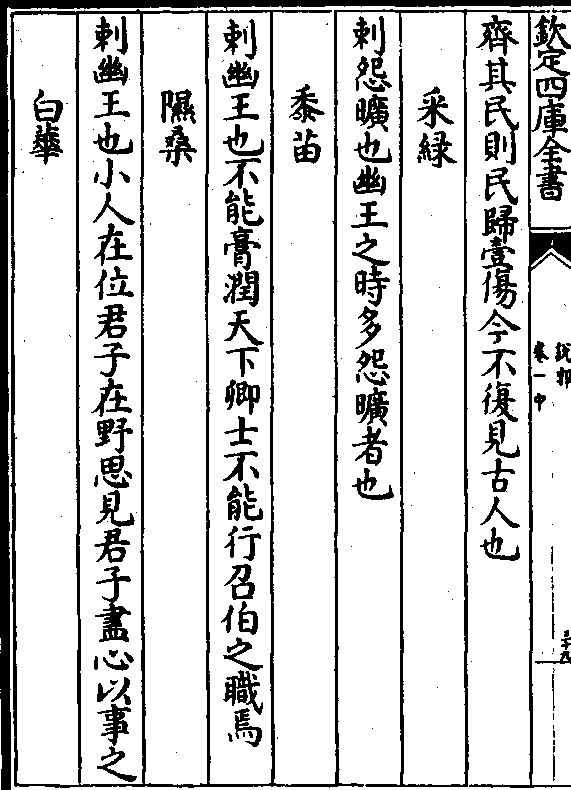 欽定四庫全書
說郛
卷一中
三十九
齊其民則民歸壹傷今不復見古人也
采緑
刺怨曠也幽王之時多怨曠者也
黍苗
刺幽王也不能膏潤天下卿士不能行召伯之職焉
隰桑
刺幽王也小人在位君子在野思見君子盡心以事之
白華